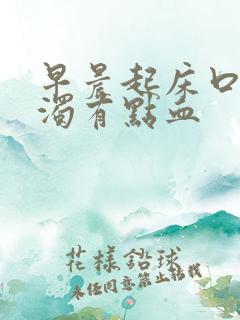 早晨起床口
濁有點血
花樣鉛球
未经同意禁止转载